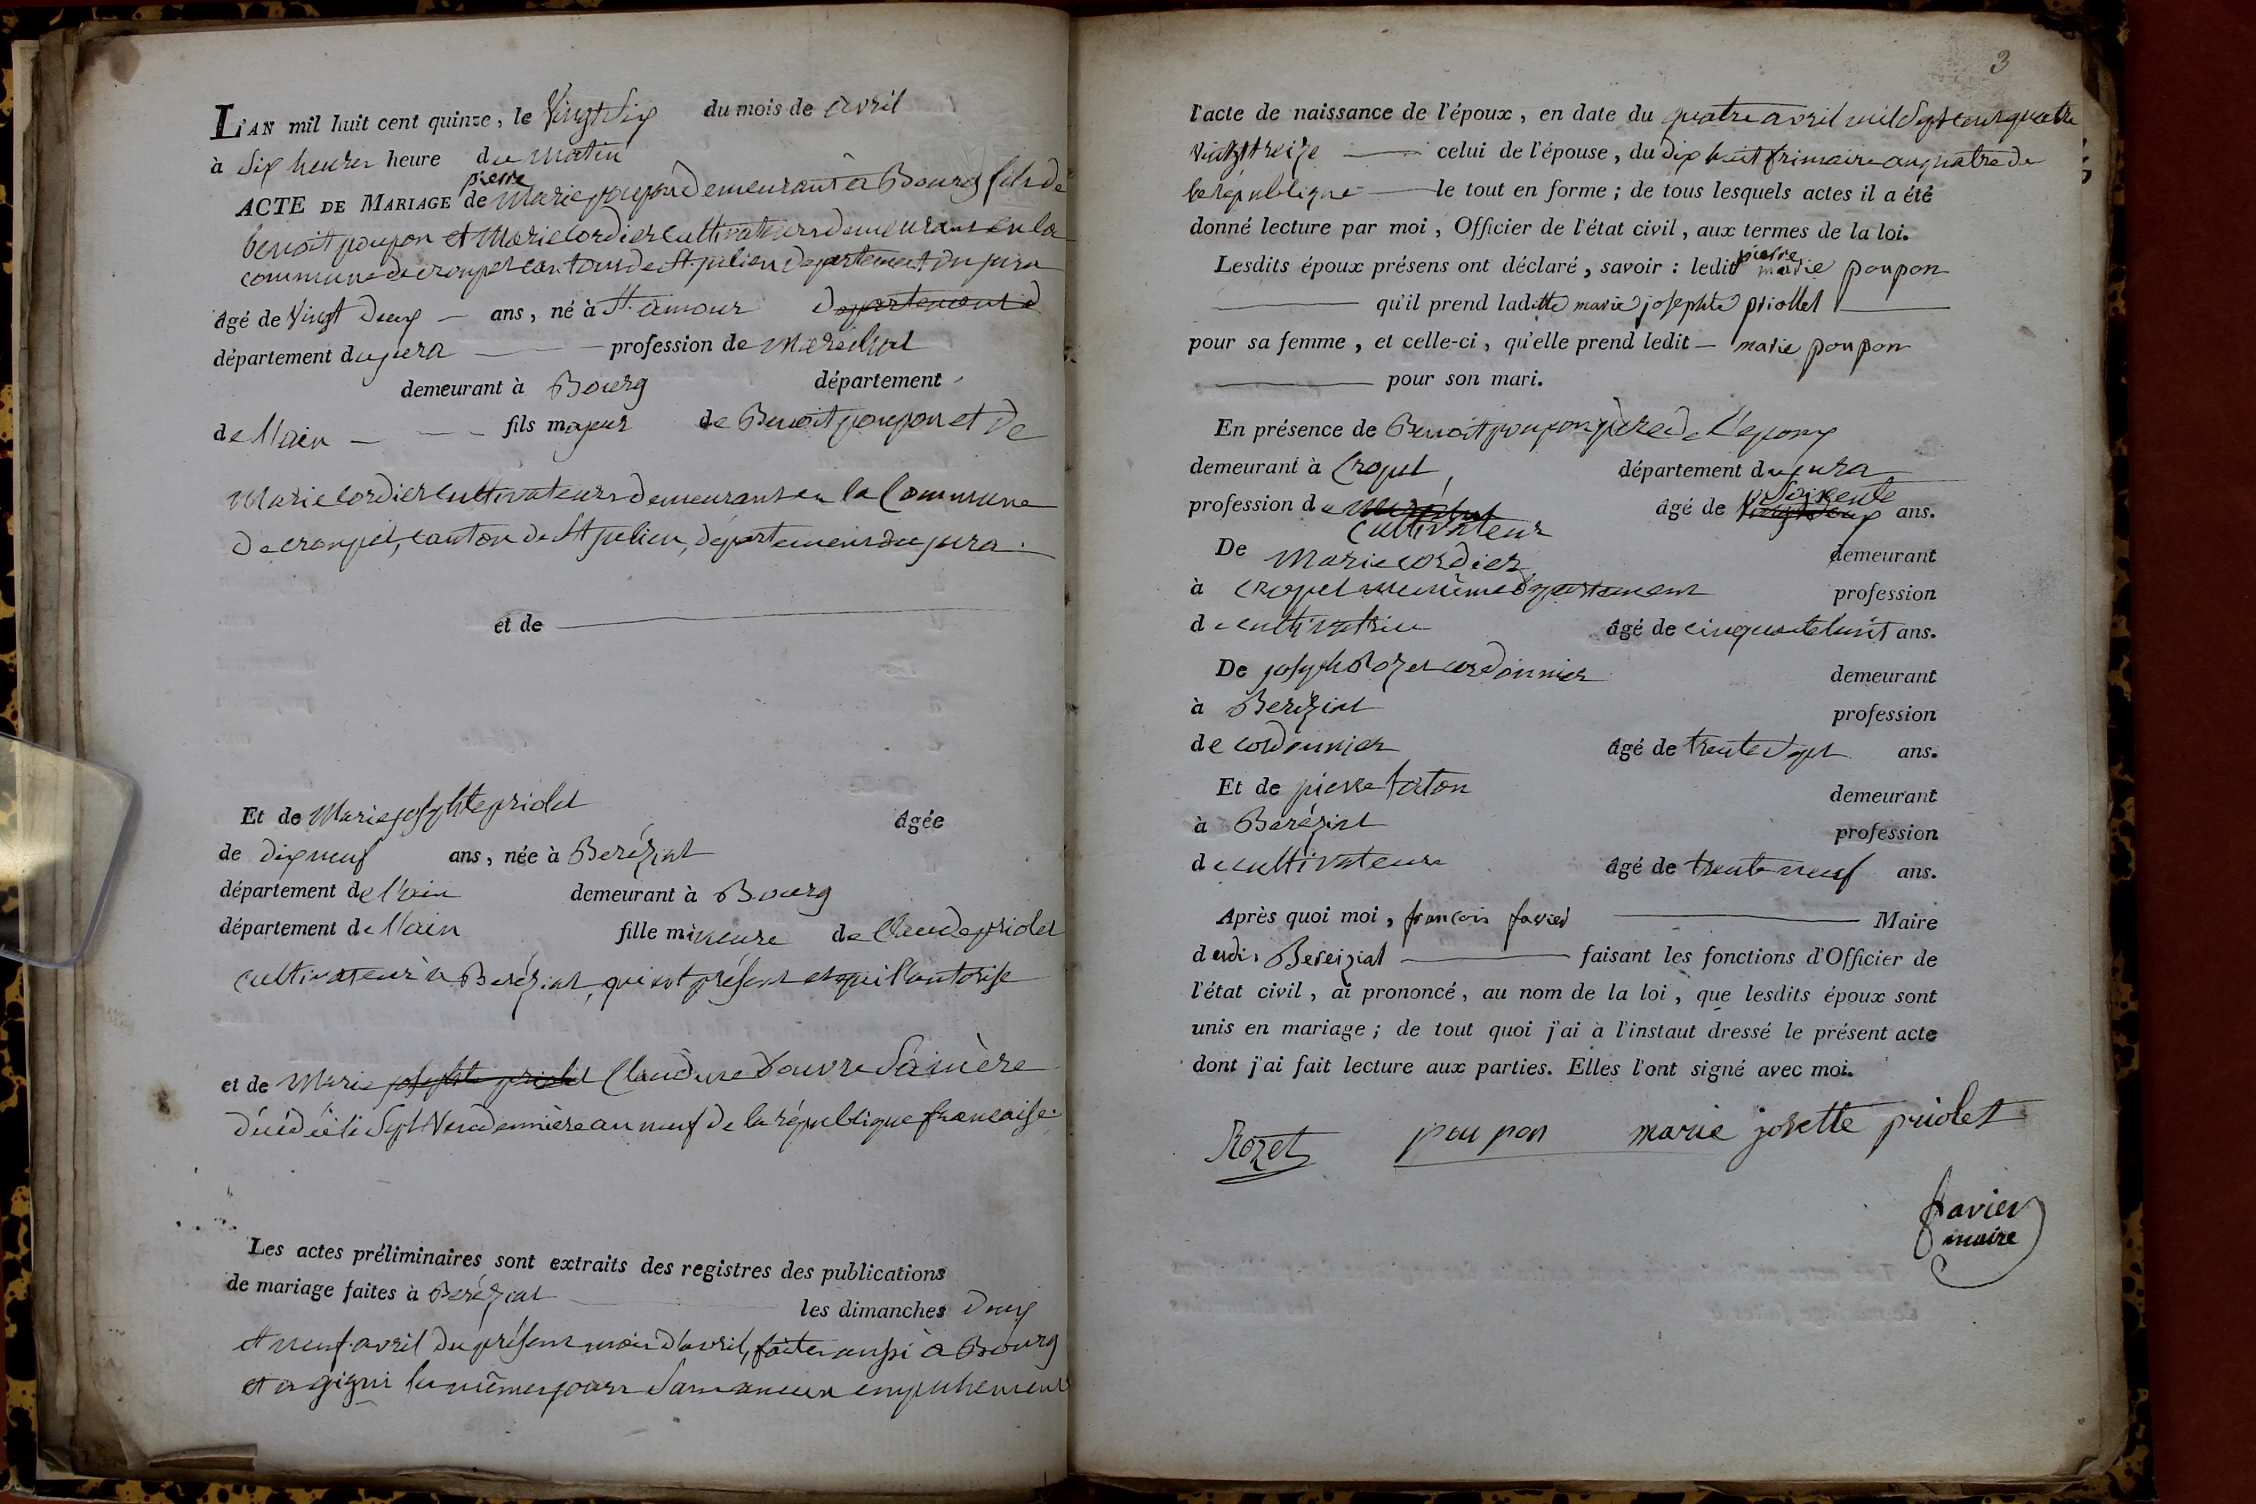 L'AN mil huit cent quinze, le Vingt Six du mois de avril
à Six heures heure du matin
pierre
ACTE DE MARIAGE de Marie poupon demeurant à Bourg fils de
benoit poupon et Marie Cordier Cultivateurs demeurans en la
commune de croupet canton de St. julien departement du jura
âgé de Vingt Deux ans, né à St. amour departement d
département du jura profession de Maréchal
demeurant à Bourg département
de l'ain fils majeur de Benoit poupon et De
Marie Cordier Cultivateurs demeurans en la Commune
De croupet, canton de St julien, département du jura.
et de
Et de Marie josephte priolet âgée
de dix neuf ans, née à Beréziat
département de l'ain demeurant à Bourg
département de l'ain fille mineure de Claude priolet
cultivateur à Beréziat, qui est présent et qui l'autorise
et de Marie josephte priolet Claudine Douvre Sa mère
Décédée le Sept Vendemière an neuf de la république francaise.
Les actes préliminaires sont extraits des registres des publications
de mariage faites à Beréziat les dimanches Deux
et neuf avril du présent mois d'avril, faites aussi à Bourg
et a gigni les mêmes jours Sans aucun empechement
3
l'acte de naissance de l'époux, en date du quatre avril mil Sept cent quatre
vingt treize celui de l'épouse, du dix huit frimaire an quatre de
la république le tout en forme; de tous lesquels actes il a été
donné lecture par moi, Officier de l'état civil, aux termes de la loi.
pierre
Lesdits époux présens ont déclaré, savoir: ledit marie poupon
qu'il prend laditte marie josephte priollet
pour sa femme, et celle-ci, qu'elle prend ledit marie poupon
pour son mari.
En présence de Benoit poupon père de l'epoux
demeurant à Cropet département du jura
Soixente
profession de maréchal âgé de Vingt Deux ans.
Cultivateur
De Marie cordier demeurant
à Cropet meme departement profession
de cultivatrice âgé de cinquante huit ans.
De joseph Rozet cordonnier demeurant
à Beréziat profession
de cordonnier âgé de trente Sept ans.
Et de pierre taton demeurant
à Beréziat profession
de cultivateur âgé de trente neuf ans.
Après quoi moi, francois favier Maire
dudi. Bereiziat faisant les fonctions d'Officier de
l'état civil, ai prononcé, au nom de la loi, que lesdits époux sont
unis en mariage; de tout quoi j'ai à l'instaut dressé le présent acte
dont j'ai fait lecture aux parties. Elles l'ont signé avec moi.
Rozet poupon marie josette priolet
favier
maire